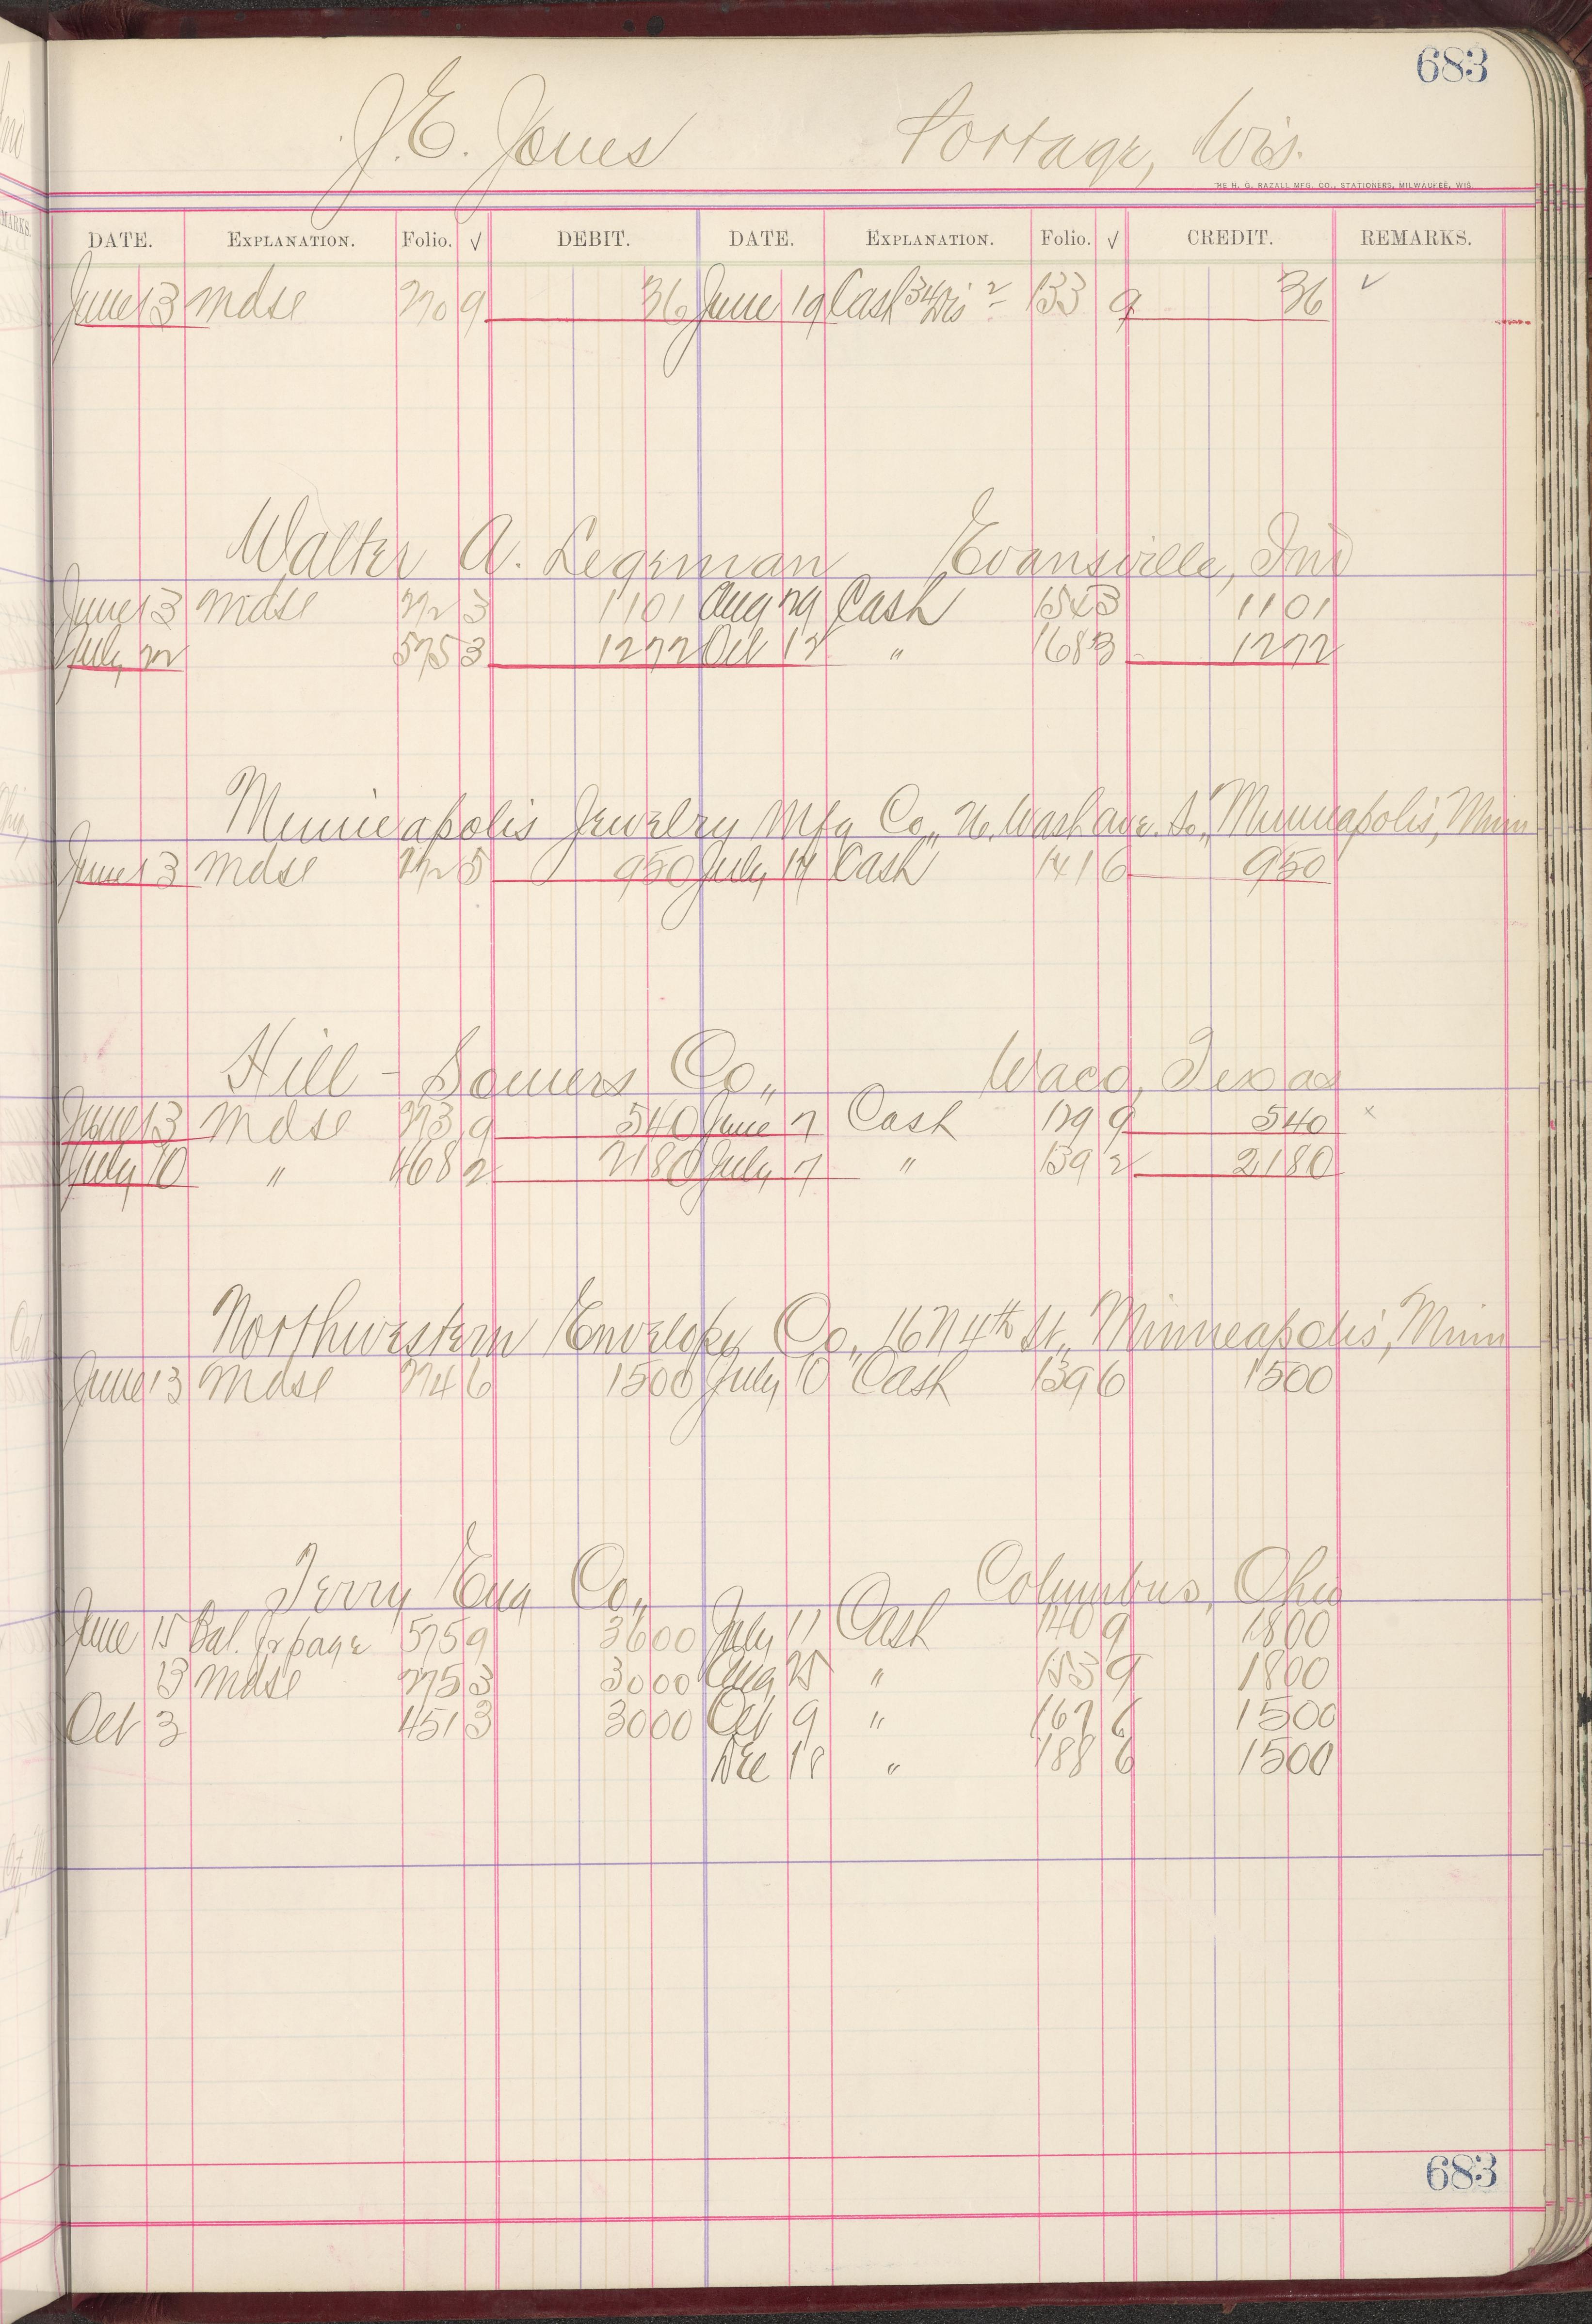 683
J. E. Jones Portage, Wis.
THE H. G. RAZALL MFG. CO., STATIONERS, MILWAUKEE, WIS.
DATE. EXPLANATION. Folio. √ DEBIT. DATE. EXPLANATION. Folio. √ CREDIT. REMARKS.
June 13 Mdse 270 9 36 June 19 Cash 34 Dis 2 133 9 36 ✓
Walter A. Legeman Evansville, Ind
June 13 Mdse 272 3 1101 Aug 29 Cash 154 3 1101
July 22 575 3 1272 Oct 12 " 168 3 1272
Minneapolis Jewelry Mfg Co., Wash ave. So., Minneapolis, Minn
June 13 Mdse 272 5 950 July 14 Cash 141 6 950
Hill - Somers Co., Waco, Texas
June 13 Mdse 273 9 540 June 7 Cash 129 9 540 x
July 10 " 468 2 2180 July 7 " 139 2 2180
Northwestern Envelope Co., 16 N 4th St., Minneapolis, Minn
June 13 Mdse 274 6 1500 July 10 Cash 139 6 1500
Terry Eng Co., Columbus, Ohio
June 15 Bal. fr page 575 9 3600 July 11 Cash 140 9 1800
13 Mdse 275 3 3000 Aug 25 " 153 9 1800
Oct 3 451 3 3000 Oct 9 " 167 6 1500
Dec 18 " 188 6 1500
683